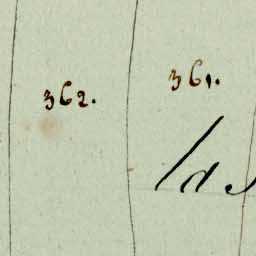 362.
361.